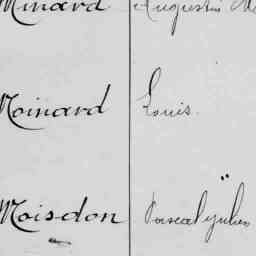 Minard Augustin
Moinard Louis.
Moisdon Pascal Jules